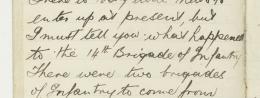 There is very little news to
enter up at present, but
I must tell you what happened
to the 14th Brigade of Infantry
There were two brigades
of Infantry to come from